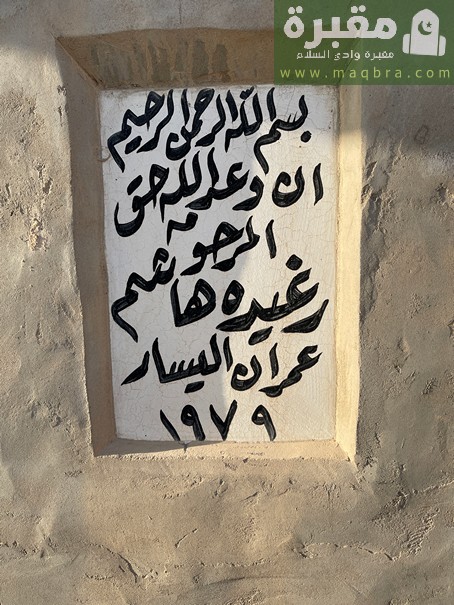 مقبرة
مقبرة وادي السلام
www.maqbra.com
بسم الله الرحمن الرحيم
ان وعد الله حق
المرحومة
رغيده هاشم
عمران اليسار
١٩٧٩